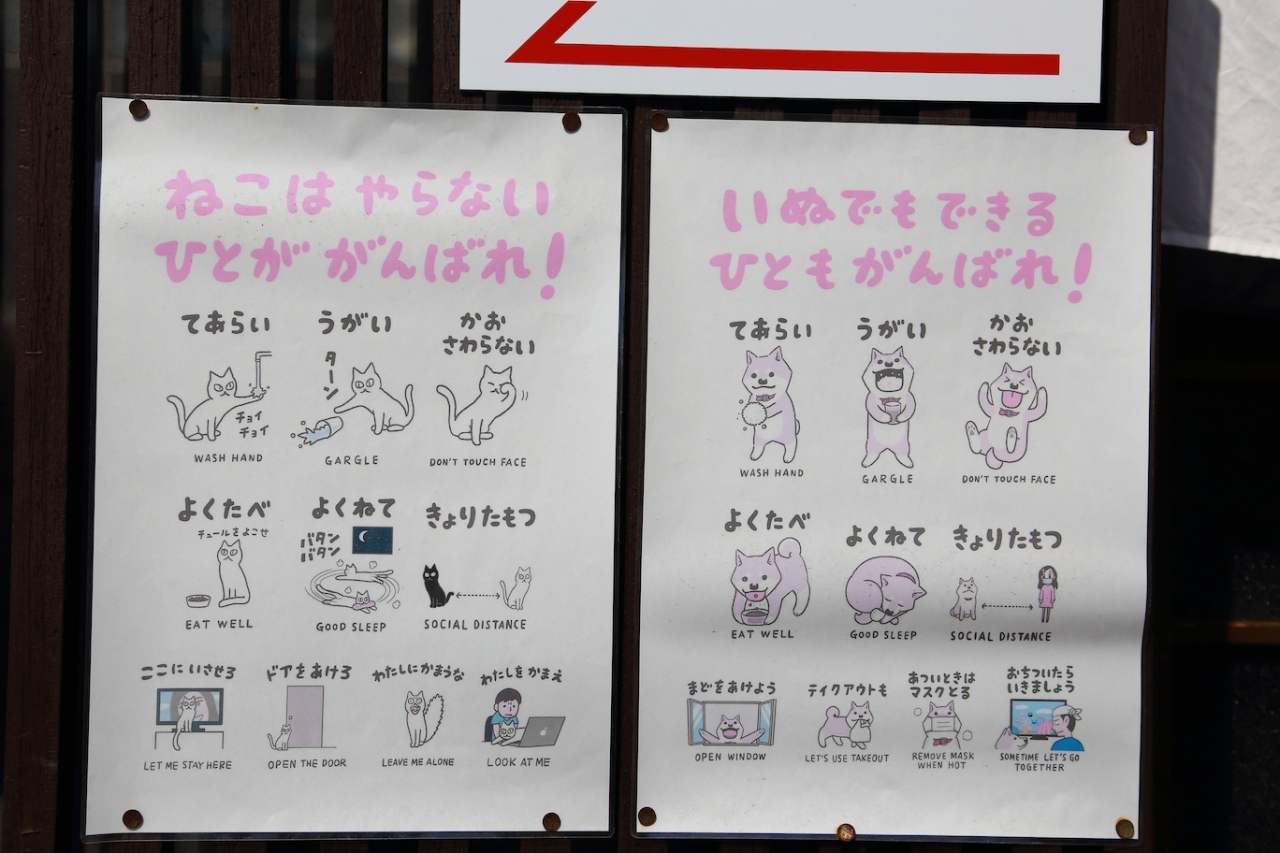 ねこは やらない
ひとが がんばれ!
てあらい
うがい
かお
さわらない
ターン
チョイ
チョイ
WASH HAND
GARGLE
DON'T TOUCH FACE
よくたべ
チュールをよこせ
よくねて
バタン
バタン
きょりたもつ
EAT WELL
GOOD SLEEP
SOCIAL DISTANCE
ここにいさせろ
ドアをあけろ
わたしにかまうな
わたしをかまえ
LET ME STAY HERE
OPEN THE DOOR
LEAVE ME ALONE
LOOK AT ME
いぬでもできる
ひともがんばれ!
てあらい
うがい
かお
さわらない
WASH HAND
GARGLE
DON'T TOUCH FACE
よくたべ
よくねて
きょりたもつ
EAT WELL
GOOD SLEEP
SOCIAL DISTANCE
まどをあけよう
テイクアウトも
あついときは
マスクとる
おちついたら
いきましょう
OPEN WINDOW
LET'S USE TAKEOUT
REMOVE MASK
WHEN HOT
SOMETIME LET'S GO
TOGETHER